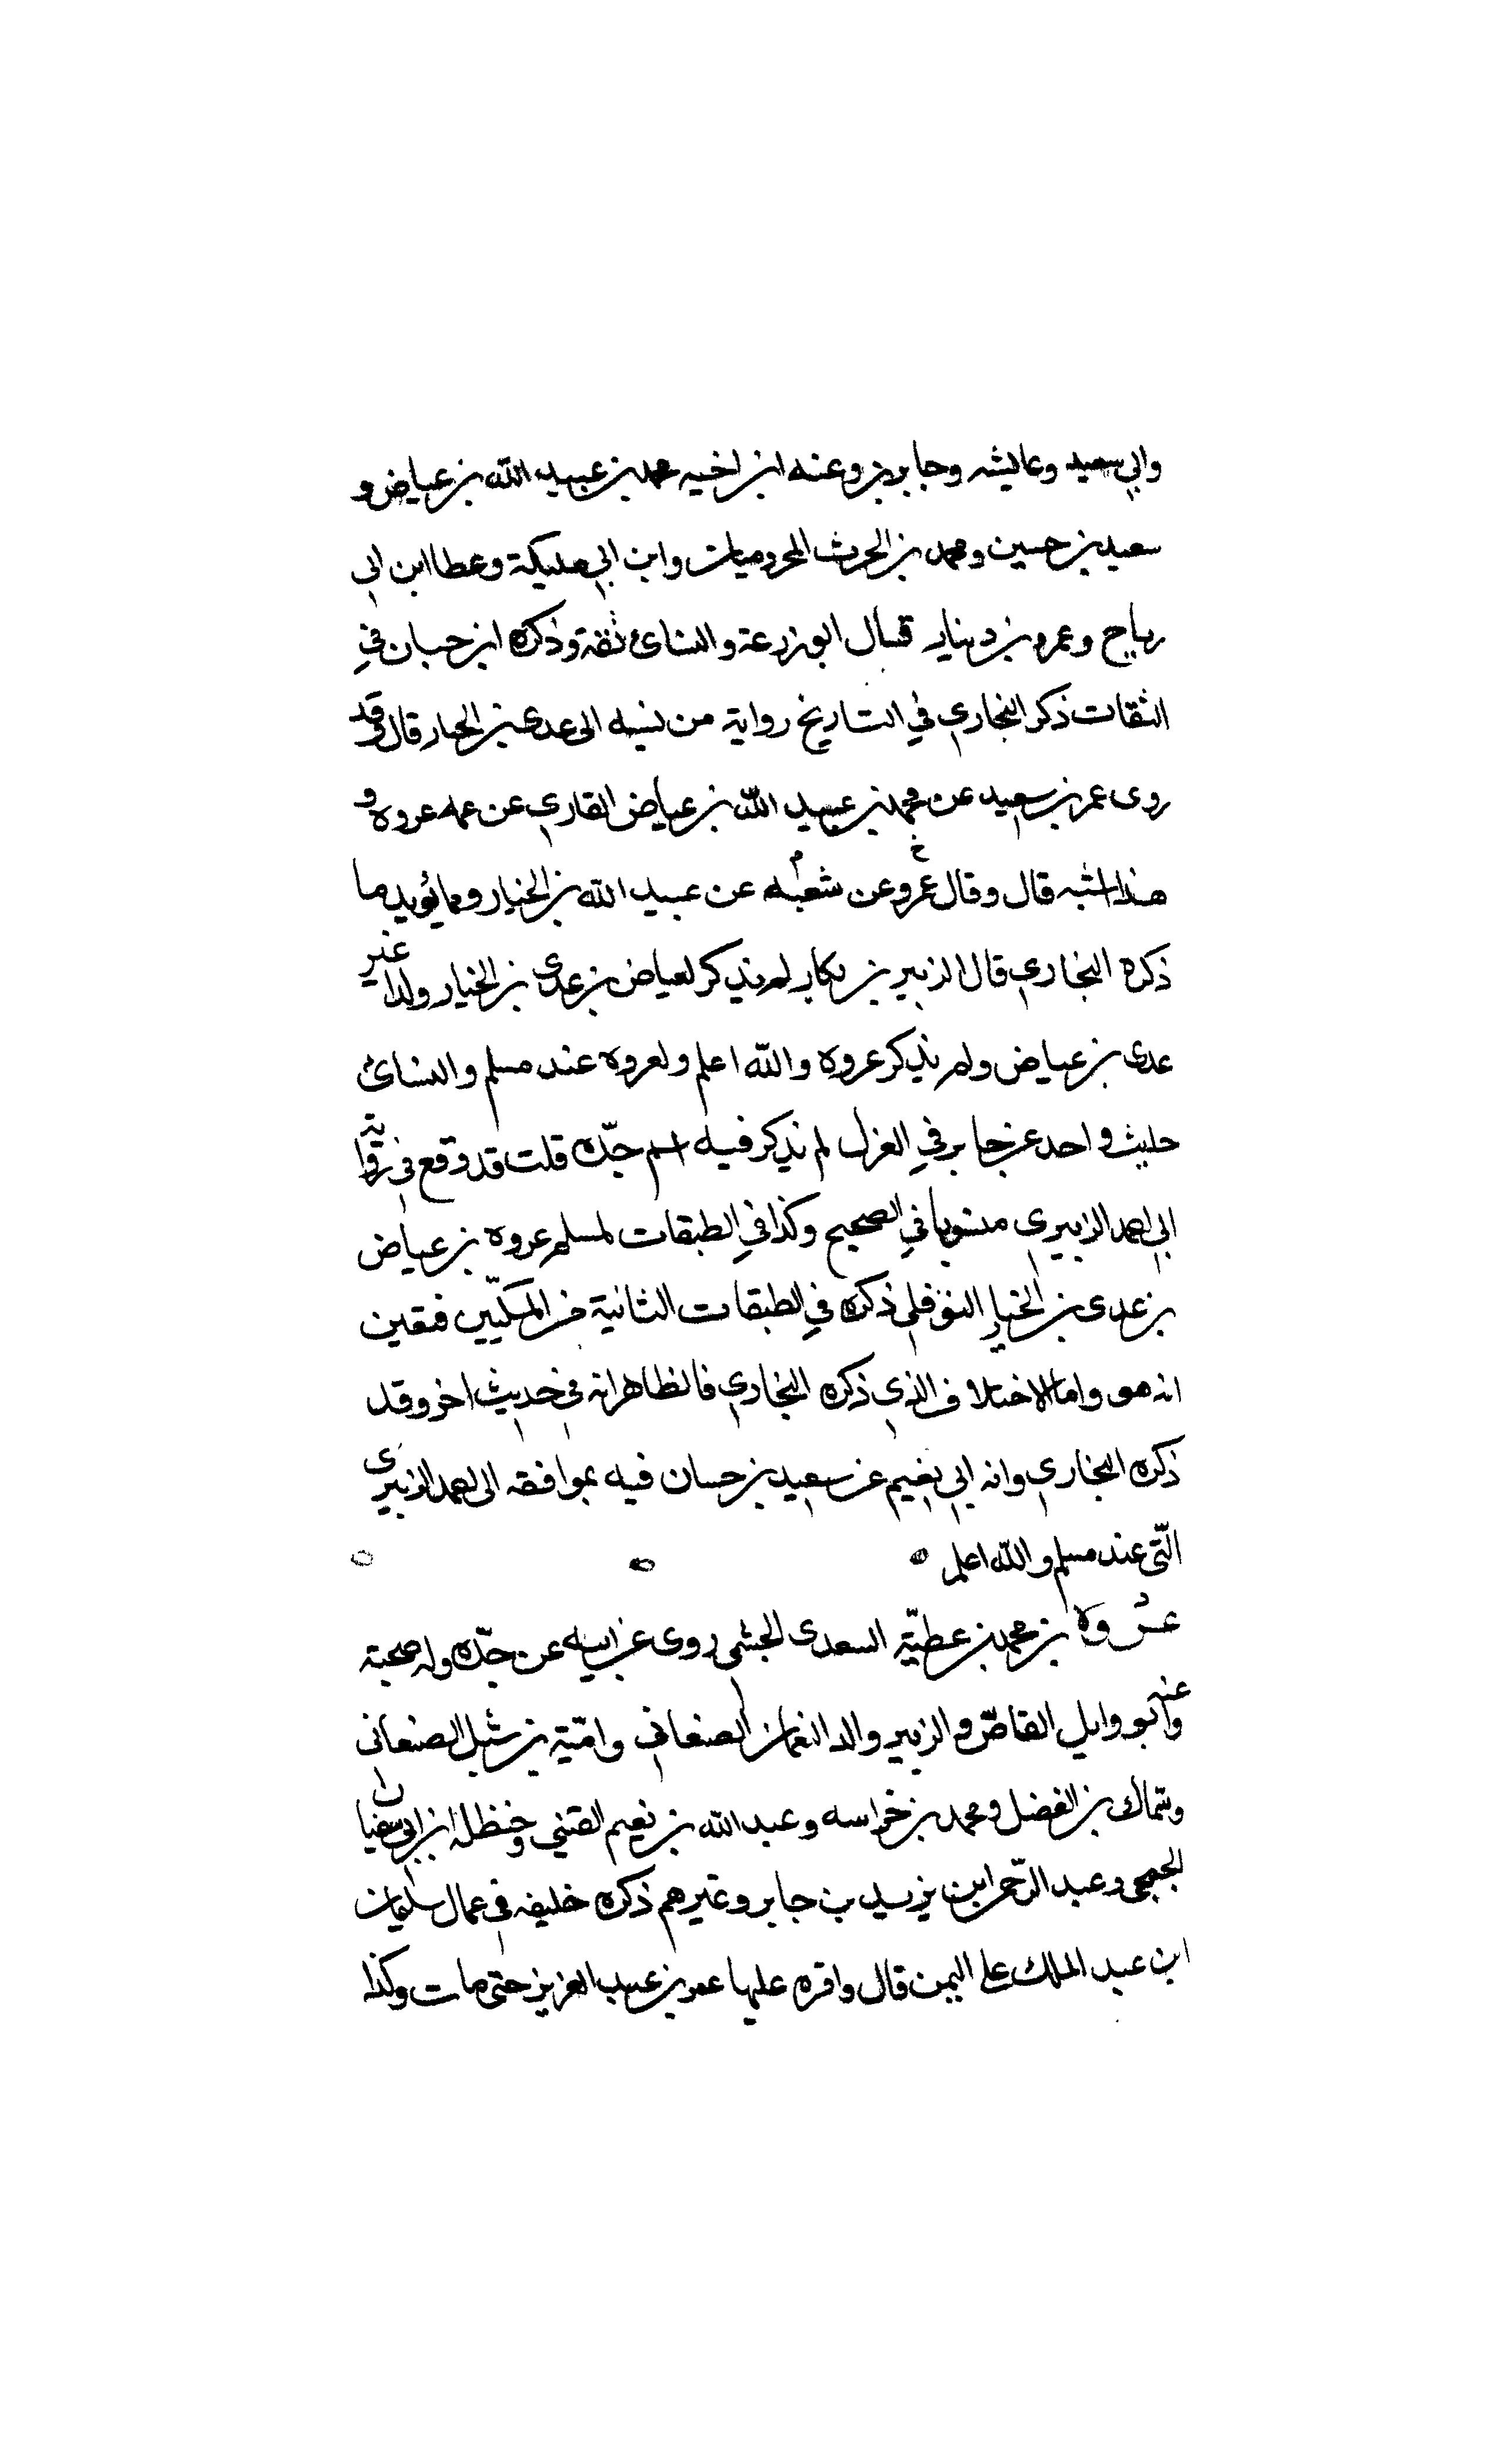 وابي سعيد وعايشه وجابر بن وعنه ابن اخيه محمد بن عبيد الله بن عياض و
سعيد بن حسين ومحمد بن الحرث المخزوميان وابن ابي مليكة وعطا ابن ابي
رباح وعمرو بن دينار قال ابو زرعة والنسائ ثقة وذكره ابن حبان في
الثقات ذكر البخاري في التاريخ رواية من نسبه الى عدى بن الخيار قال وقد
روى عمر بن سعيد عن محمد بن عبيد الله بن عياض القاري عن عمه عروه و
هذا اشبه قال وقال عمرو عن شعبه عن عبيد الله بن الخيار ومما يؤيد ما
ذكره البخاري قال الزبير بن بكار لم يذكر لعياض بن عدى بن الخيار ولدا غير
عدى بن عياض ولم يذكر عروه والله اعلم ولعروه عند مسلم والنسائ
حديث واحد عن جابر في العزل لم يذكر فيه اسم جده قلت قد وقع في رواية
ابي احمد الزبيرى منسوبا في الصحيح وكذا في الطبقات لمسلم عروه بن عياض
بن عدى بن الخيار النوفلي ذكره في الطبقات الثانية من المكيين فتعين
انه هو واما الاختلاف الذي ذكره البخاري فالظاهر انه في حديث اخر وقد
ذكره البخاري وانه ابي نعيم عن سعيد بن حسان فيه بموافقه ابي احمد الزبيرى
التي عند مسلم والله اعلم
عروه بن محمد بن عطية السعدى الجشمى روى عن ابيه عن جده وله صحبة
وعنه ابو وايل القاص والزبير والد النعمان الصنعاني وامية بن شبل الصنعانى
وسماك بن الفضل ومحمد بن خراسه وعبد الله بن نعيم القيني وحنظلة ابن ابي سفيان
الجمحى وعبد الرحمن ابن يزيد بن جابر وغيرهم ذكره خليفه في عمال سليمان
ابن عبد الملك على اليمن قال واقره عليها عمر بن عبد العزيز حتى مات وكذا